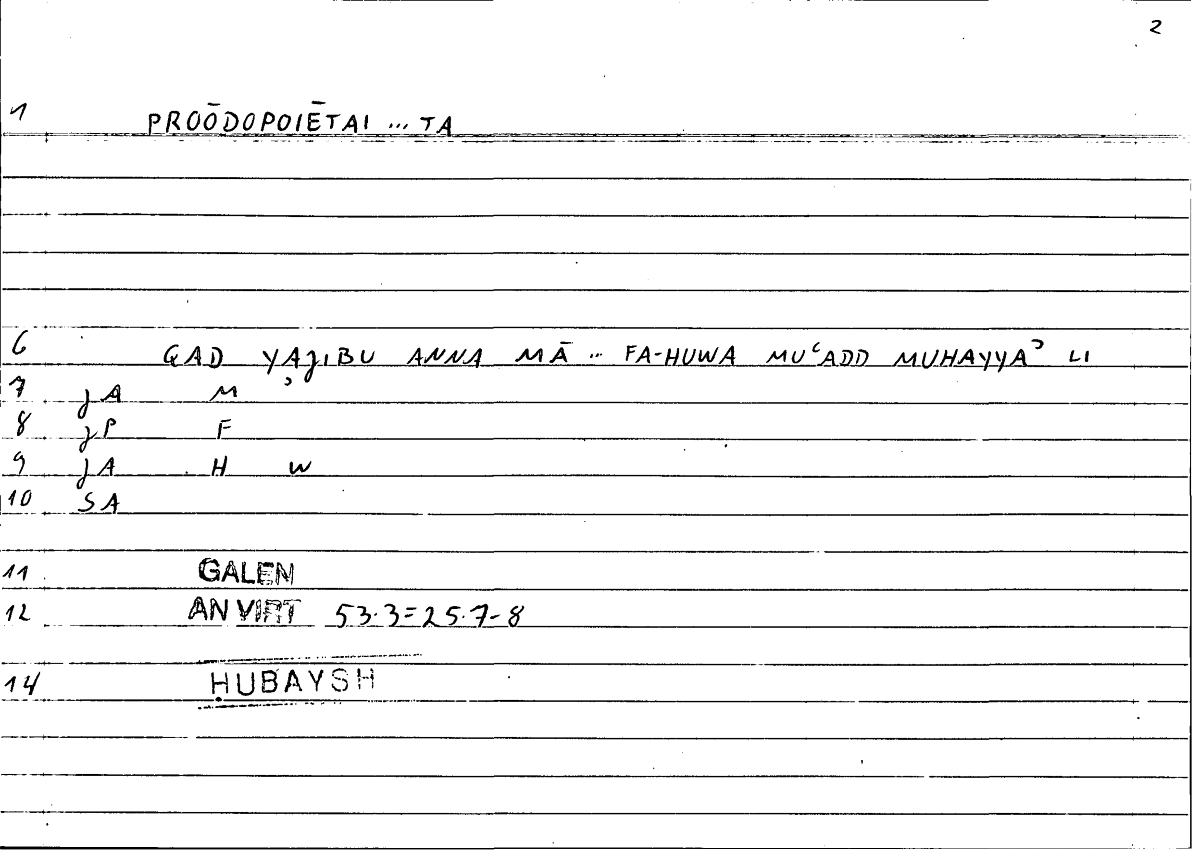 2
1 PROŌDOPOIĒTAI ... TA
6 QAD YAJIBU ANNA MĀ .. FA-HUWA MUʿADD MUHAYYAʾ LI
7 JA M ʾ
8 JP F
9 JA H W
10 SA
11 GALEN
12 AN VIRT 53.3=25.7-8
14 ḤUBAYSH